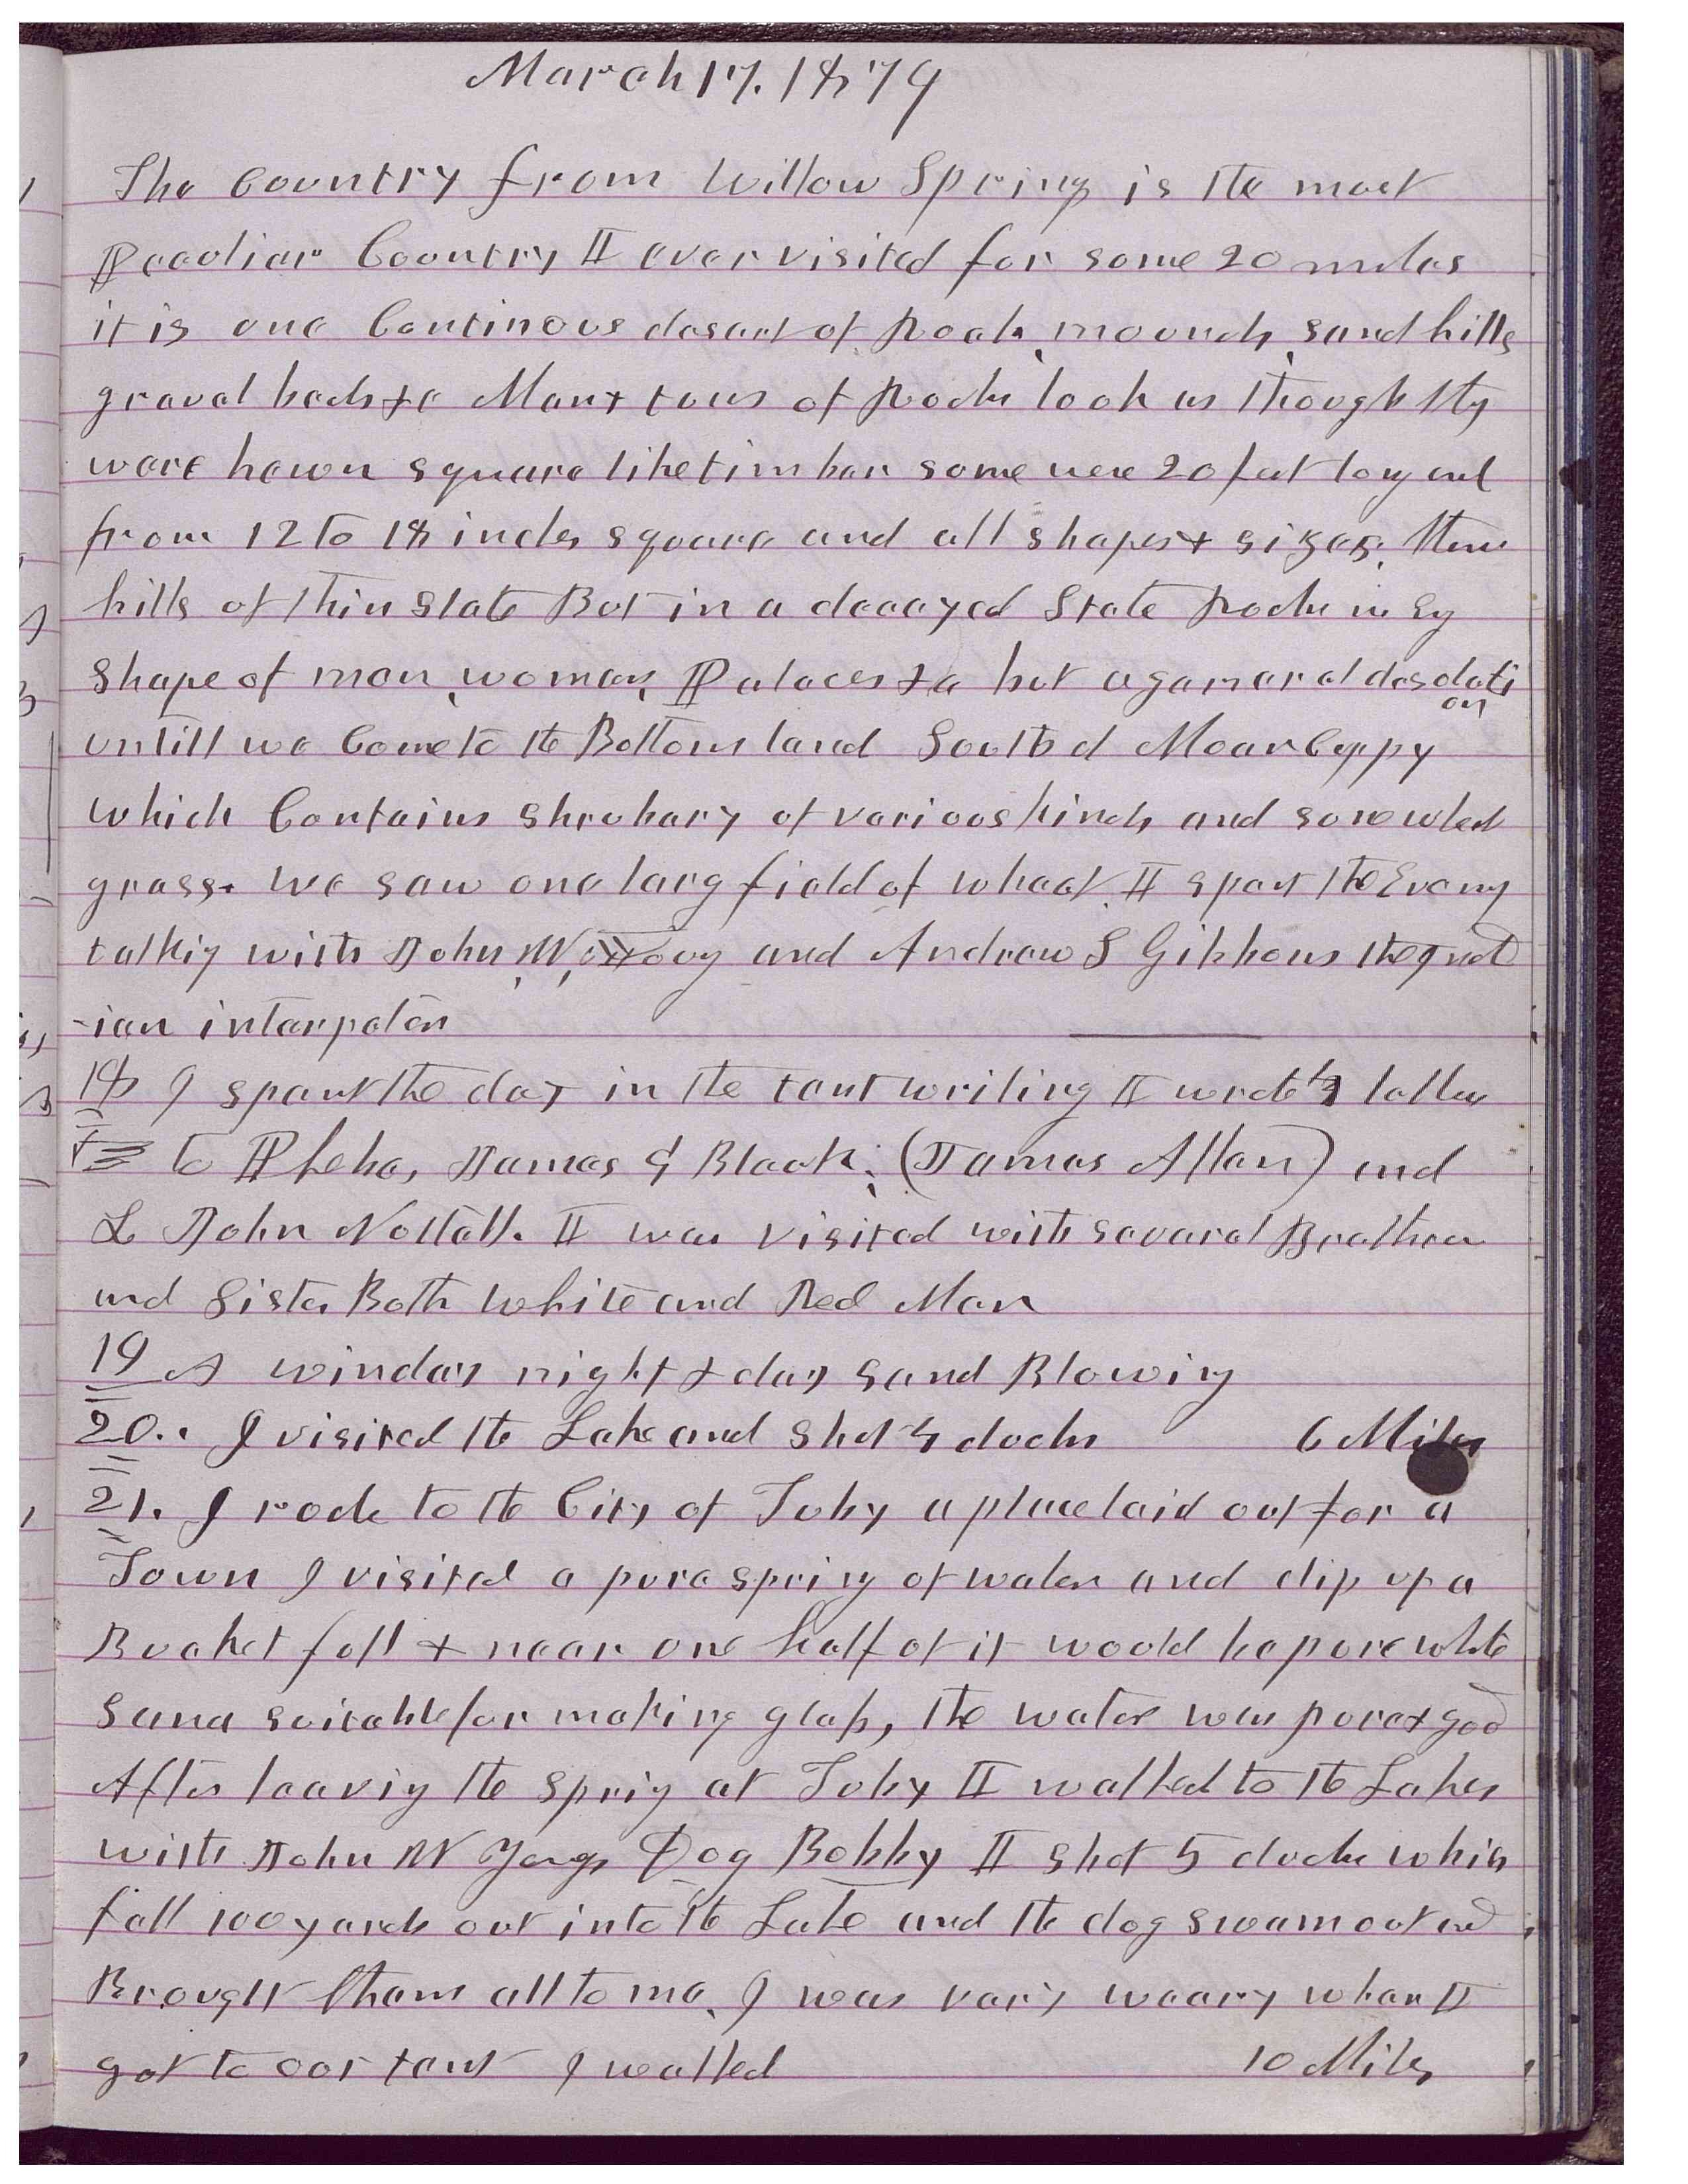 March 17. 1879
The Country from Willow Springs is the most
Peculiar Country I ever visited for some 20 miles
it is one Continous desart of Rocks, mounds, sand hills
gravel beds &c Many tons of Rocks look as though they
were hewn square like timber some were 20 feet long and
from 12 to 18 inches square and all shapes & sizes, then
hills of thin slate But in a decayed State Rocks in Eg
shape of men, women, Palaces &c but a general desolati
on
untill we Come to the Bottom land South of Moancoppy
which Contains shrubery of various kinds and some wheat
grass. we saw one larg field of wheat. I spent the Evening
talking with John, W, Young and Andrew S Gibbons the Ind
-ian interpeter
18 I spent the day in the tent writing I wrote 4 letters
to Phebe, James G Bleak, (James Allen) and
L John Nuttall. I was visited with several Brethren
and Sister Both White and Red Men
19 A winday night & day sand Blowing
20.. I visited the Lake and shot 4 ducks 6 Miles
21. I rode to the City of Tuby a place laid out for a
Town I visited a pure spring of water and dip up a
Bucket full & near one half of it would be pure white
sand suitable for making glass, the water was pure & good
After leaving the spring at Tuby I walked to the Lakes
with John W Youngs Dog Bobby I shot 5 ducks which
fell 100 yards out into the Lake and the dog swam out and
Brought them all to me. I was very weary when I
got to our tent I walked 10 Miles